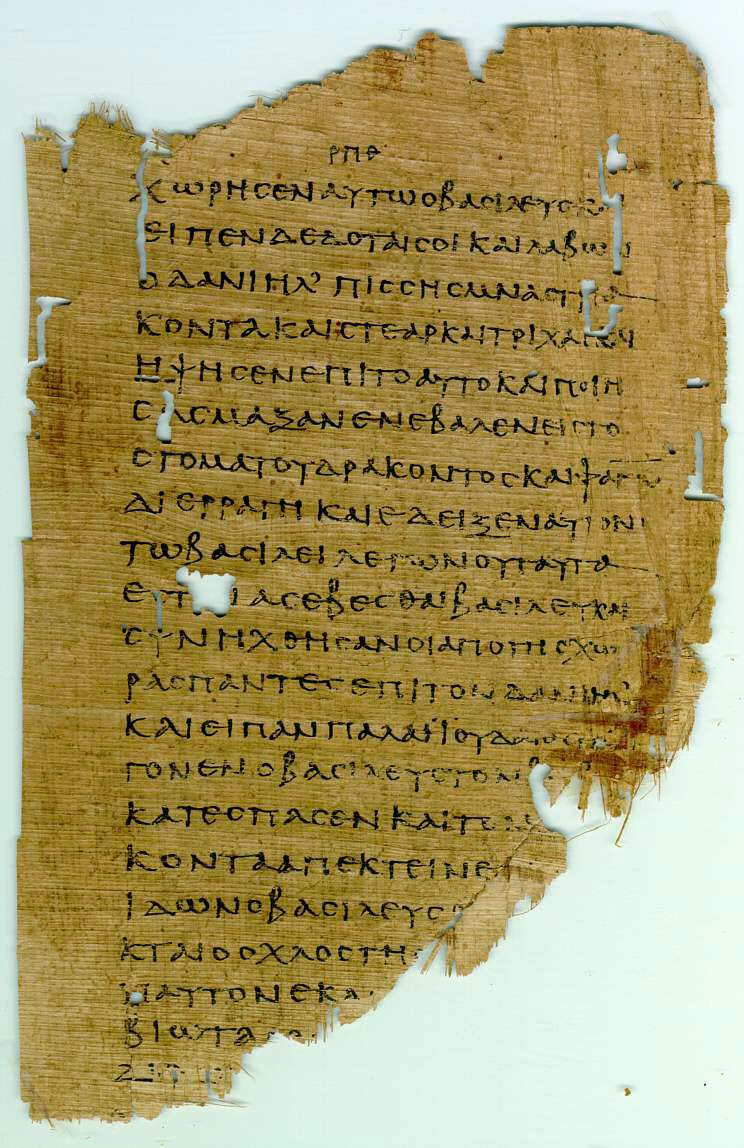 ΡΠΘ
ΧΩΡΗϹΕΝΑΥΤΩΟΒΑϹΙΛΕΥϹΚΑΙ
ΕΙΠΕΝΔΕΔΟΤΑΙϹΟΙΚΑΙΛΑΒΩΝ
ΟΔΑΝΙΗΛ’ΠΙϹϹΗϹΜΝΑϹΤΡΙΑ
ΚΟΝΤΑΚΑΙϹΤΕΑΡΚΑΙΤΡΙΧΑϹ
ΗΨΗϹΕΝΕΠΙΤΟΑΥΤΟΚΑΙΠΟΙΗ
ϹΑϹΜΑΖΑΝΕΝΕΒΑΛΕΝΕΙϹΤΟ
ϹΤΟΜΑΤΟΥΔΡΑΚΟΝΤΟϹΚΑΙΦΑΓΩ
ΔΙΕΡΡΑΓΗΚΑΙΕΔΕΙΞΕΝΑΥΤΟΝ
ΤΩΒΑϹΙΛΕΙΛΕΓΩΝΟΥΤΑΥΤΑ
ΕΥΤ ΙΑϹΕΒΕϹΘΑΙΒΑϹΙΛΕΥΚΑΙ
ϹΥΝΗΧΘΗϹΑΝΟΙΑΠΟΤΗϹΧΩ
ΡΑϹΠΑΝΤΕϹΕΠΙΤΟΝΔΑΝΙΗΛ’
ΚΑΙΕΙΠΑΝΠΑΛΑΙΙΟΥΔΑΙΟϹ
ΓΟΝΕΝΟΒΑϹΙΛΕΥϹΤΟΝΒ
ΚΑΤΕϹΠΑϹΕΝΚΑΙΤΟΝ
ΚΟΝΤΑΑΠΕΚΤΕΙΝΕ
ΙΔΩΝΟΒΑϹΙΛΕΥϹΟ
ΚΤΑΙΟΟΧΛΟϹΤΗϹ
ΠΑΥΤΟΝΕΚΑ
ΒΙΩΤΑϹ